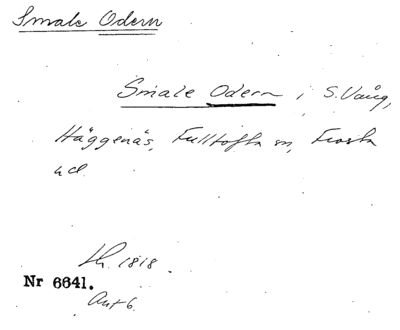 Smale Odern
Smale Odern i S. Vång,
Häggenäs, Fulltofta sn, Frosta
hd.
Lh. 1818.
Nr 6641.
Akt 6.